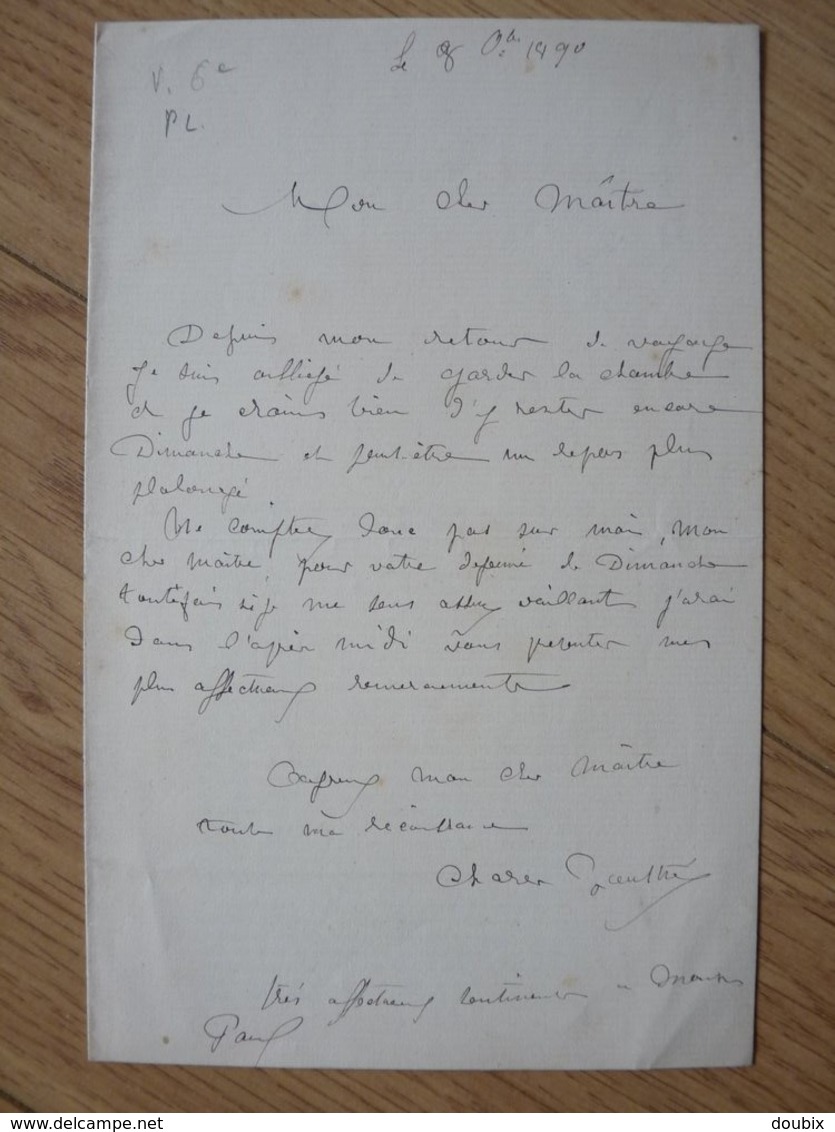 Le 8 8bre 1890
V. 6e
PL.
Mon cher Maître
Depuis mon retour de voyage
je suis obligé de garder la chambre
et je crains bien d'y rester encore
Dimanche et peut-être un repos plus
prolongé
Ne comptez donc pas sur moi, mon
cher Maître, pour votre dejeuné de Dimanche
toutefois si je me sens assez vaillant j'irai
dans l'après midi vous présenter mes
plus affectueux remerciements
Agréez mon cher Maître
toute ma reconnaissance
Charles Gauthier
très affectueux sentiments a
Paul
delcampe.net
doubix